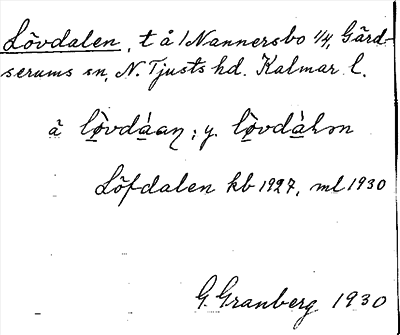 Lövdalen, t å 1 Nannersbo 1/4, Gärd-
serums sn, N. Tjusts hd. Kalmar l.
å lo̲vdá̲an; y. lo̲vdà̲lən
Löfdalen kb 1927, ml 1930
G. Granberg 1930